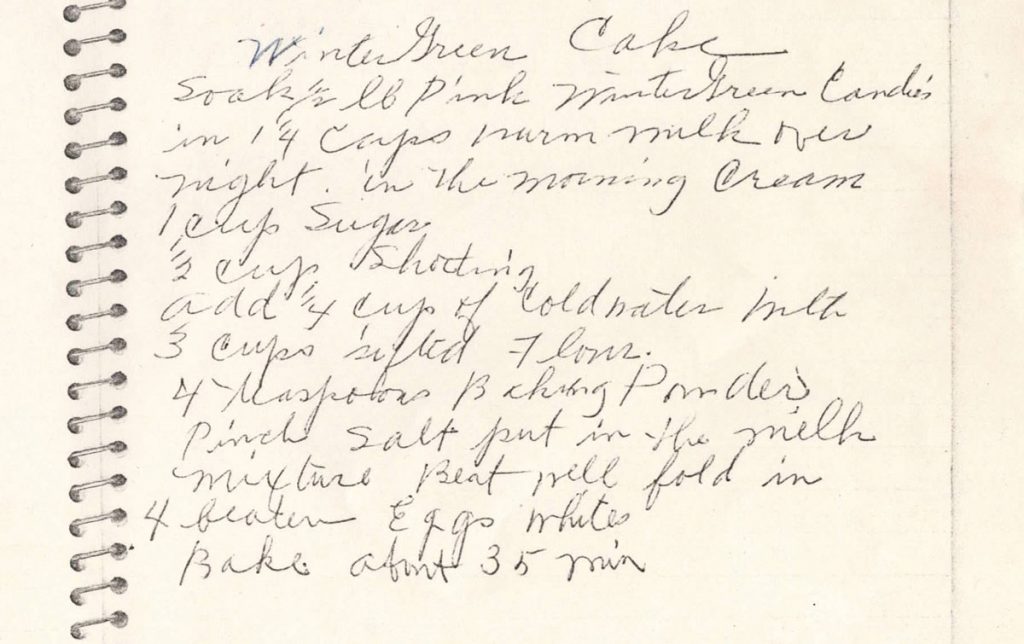 WinterGreen Cake
Soak 1/2 lb Pink WinterGreen Candies
in 1 1/4 Cups warm milk over
night. in the morning Cream
1 cup Sugar
1/2 cup Shorting
add 1/4 cup of Coldwater with
3 cups sifted Flour.
4 Teaspoons Baking Powder
Pinch Salt put in the milk
mixture Beat well fold in
4 beaten Eggs whites
Bake about 35 min